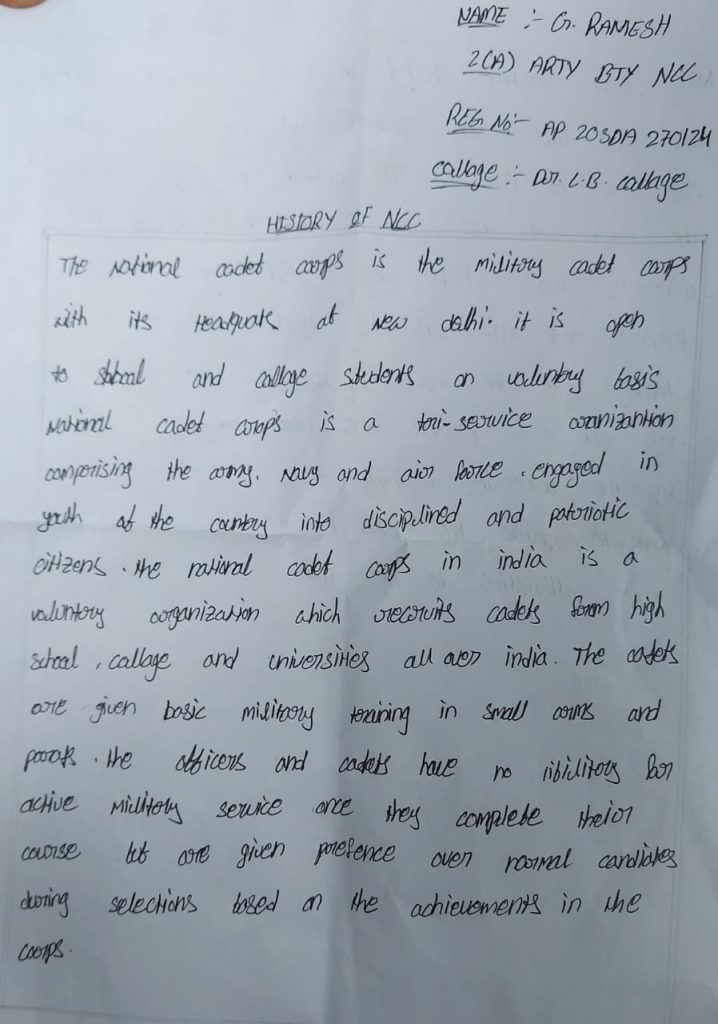 NAME :- G. RAMESH
2(A) ARTY BTY NCC
REG No:- AP 20SDA 270124
callage :- Dr. L.B. callage
HISTORY OF NCC
The National cadet corps is the military cadet corps
with its Headquate at New delhi. it is open
to shhool and callage students on voluntry basis
National cadet corps is a tri-service oranizantion
comprising the army, Navy and air force. engaged in
youth of the country into disciplined and patriotic
citizens. the national cadet corps in india is a
voluntory organization which recruits cadets form high
school, callage and universities all over india. The cadets
are given basic military training in small arms and
The officers and cadets have no libilitory for
active Military service once they complete their
course but are given prefence over normal candiates
during selections based on the achievements in the
corps.